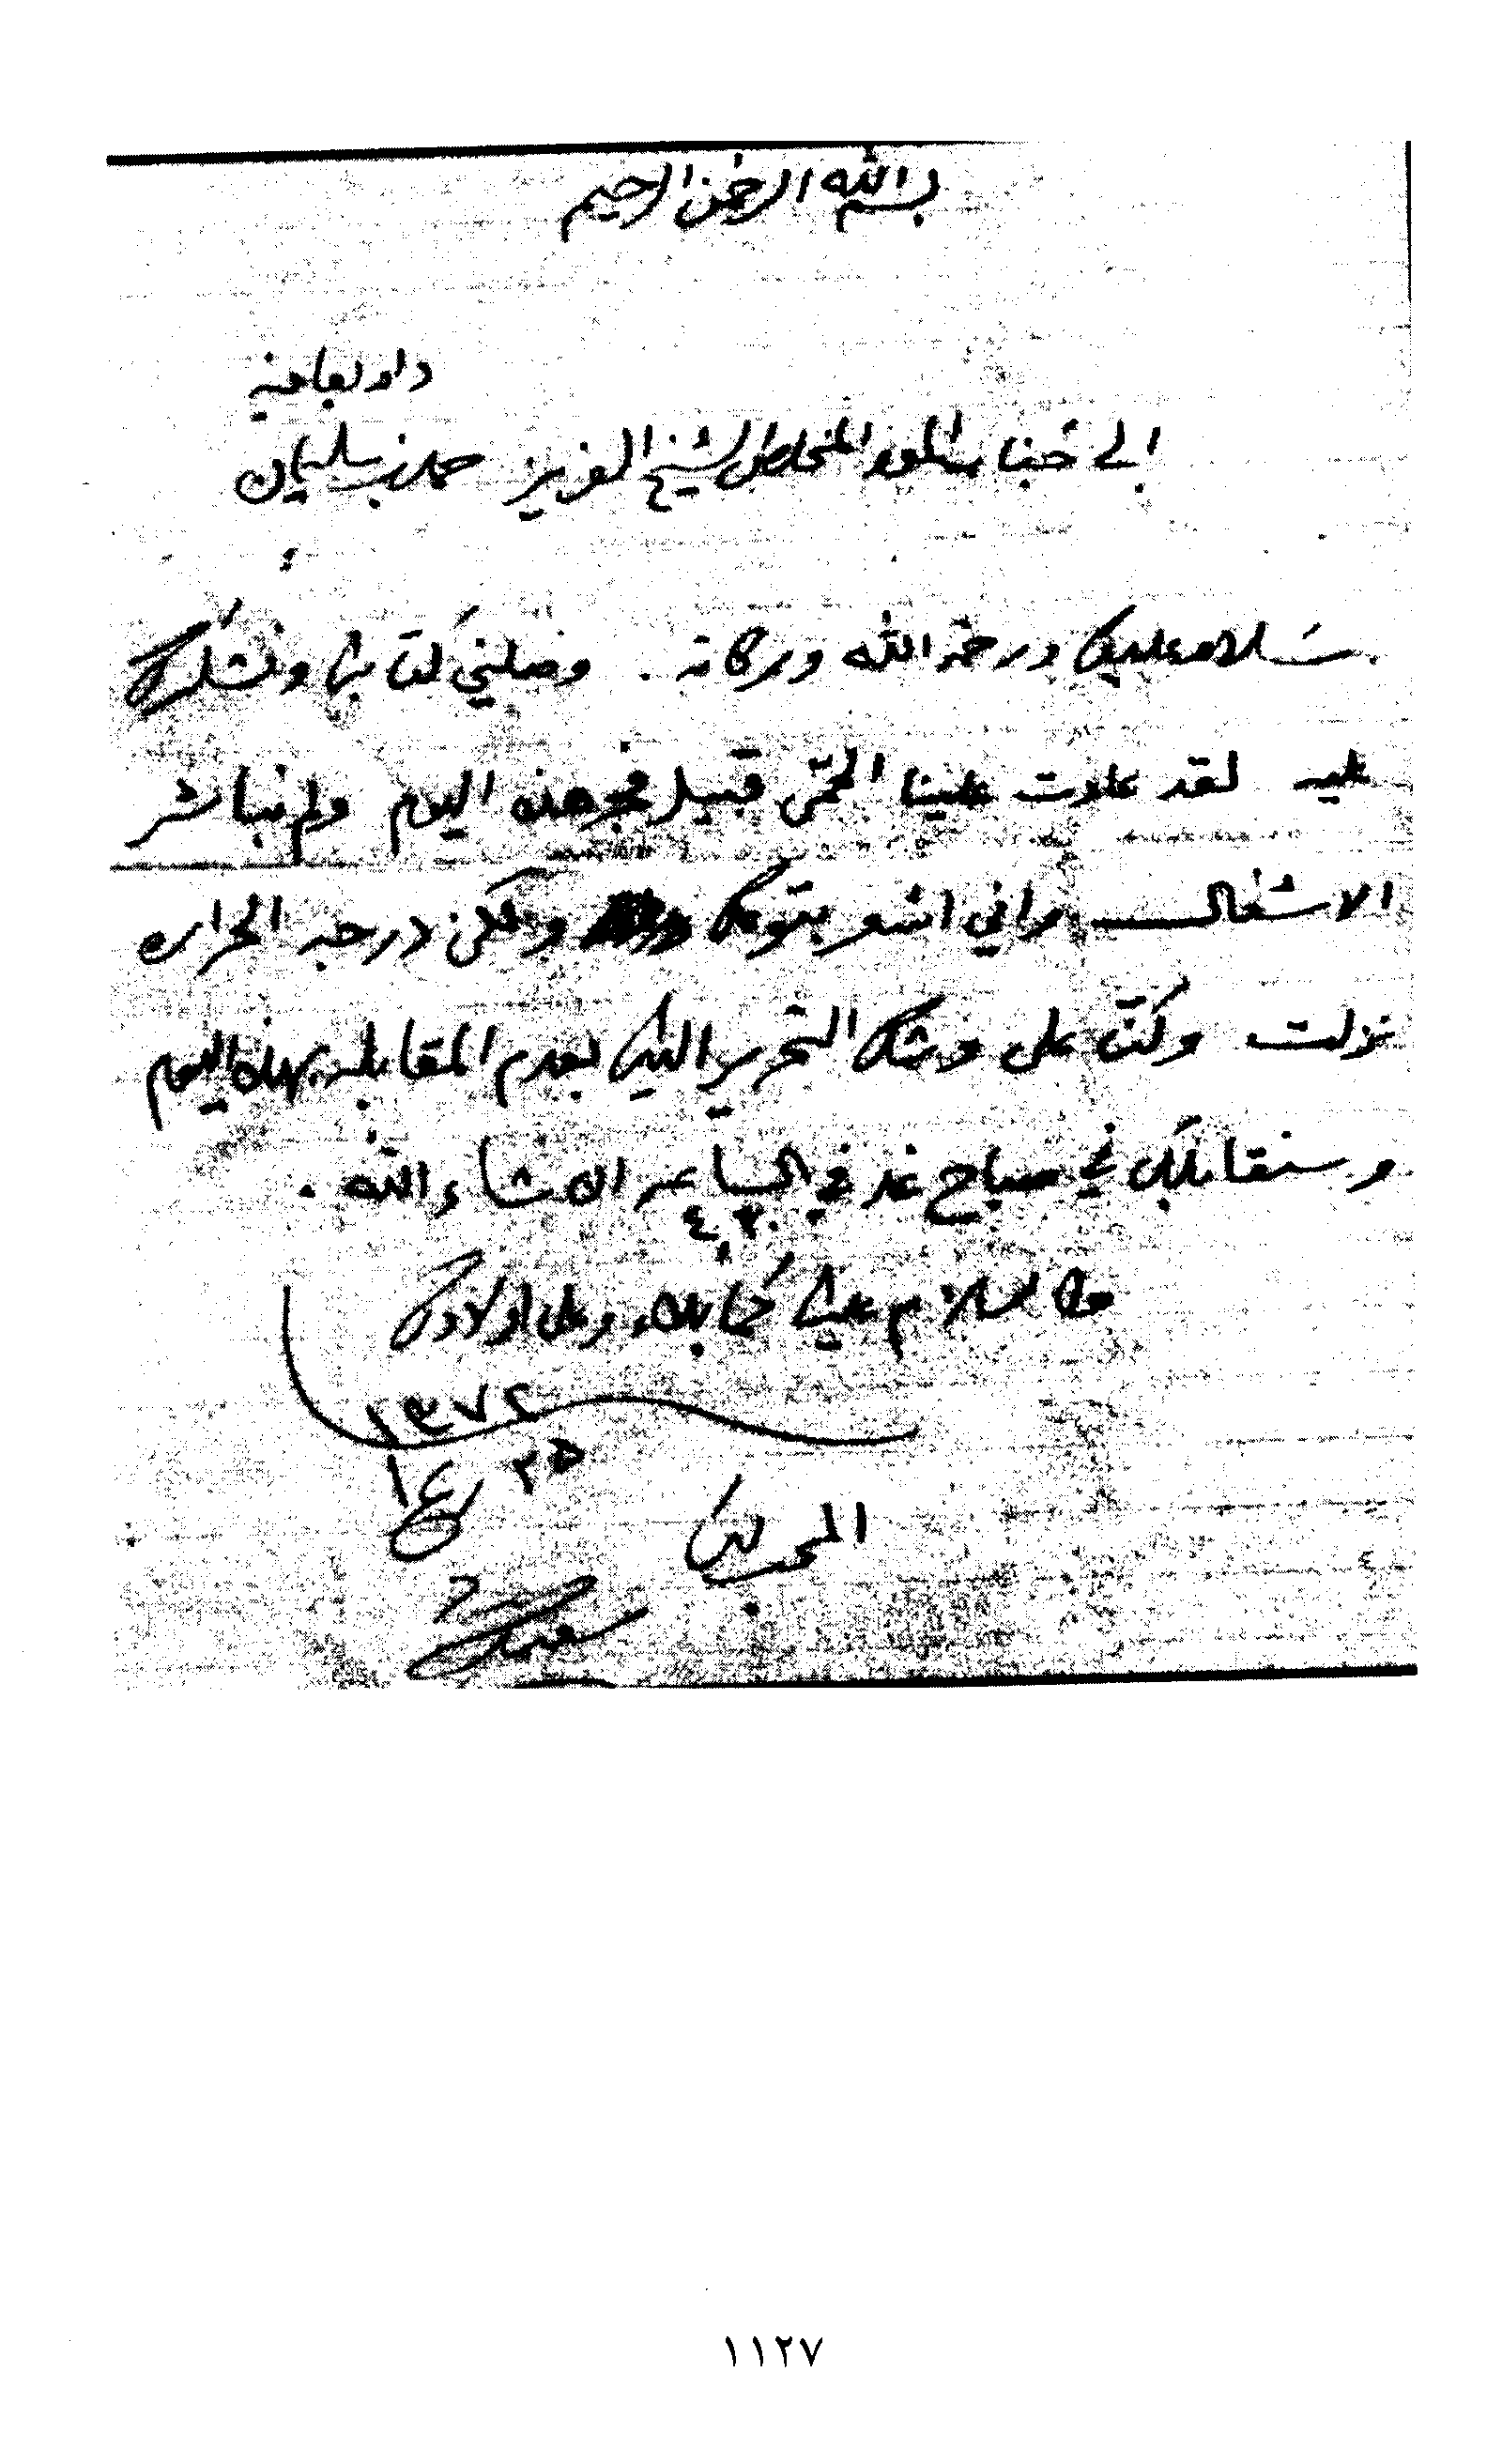 بسم الله الرحمن الرحيم
دام بعافية
إلى جناب المود المخلص الشيخ العزيز حمد بن سليمان
سلام عليك ورحمة الله وبركاته . وصلني كتابك ونشكرك
عليه لقد عادت علينا الحمى قبيل فجر هذه اليوم ولم نباشر
الاشغال واني اشعر بتوعك ولكن درجة الحراره
نزلت وكنت على وشك التحرير اليك بعدم المقابلة بهذه اليوم
وسنقابلك في صباح غد في الساعه ان شاء الله .
٤٫٣٠
والسلام عليك كما بدء وعلى اولادك
١٩٧٢
٢٥
المحب لك
سعيد
١١٢٧